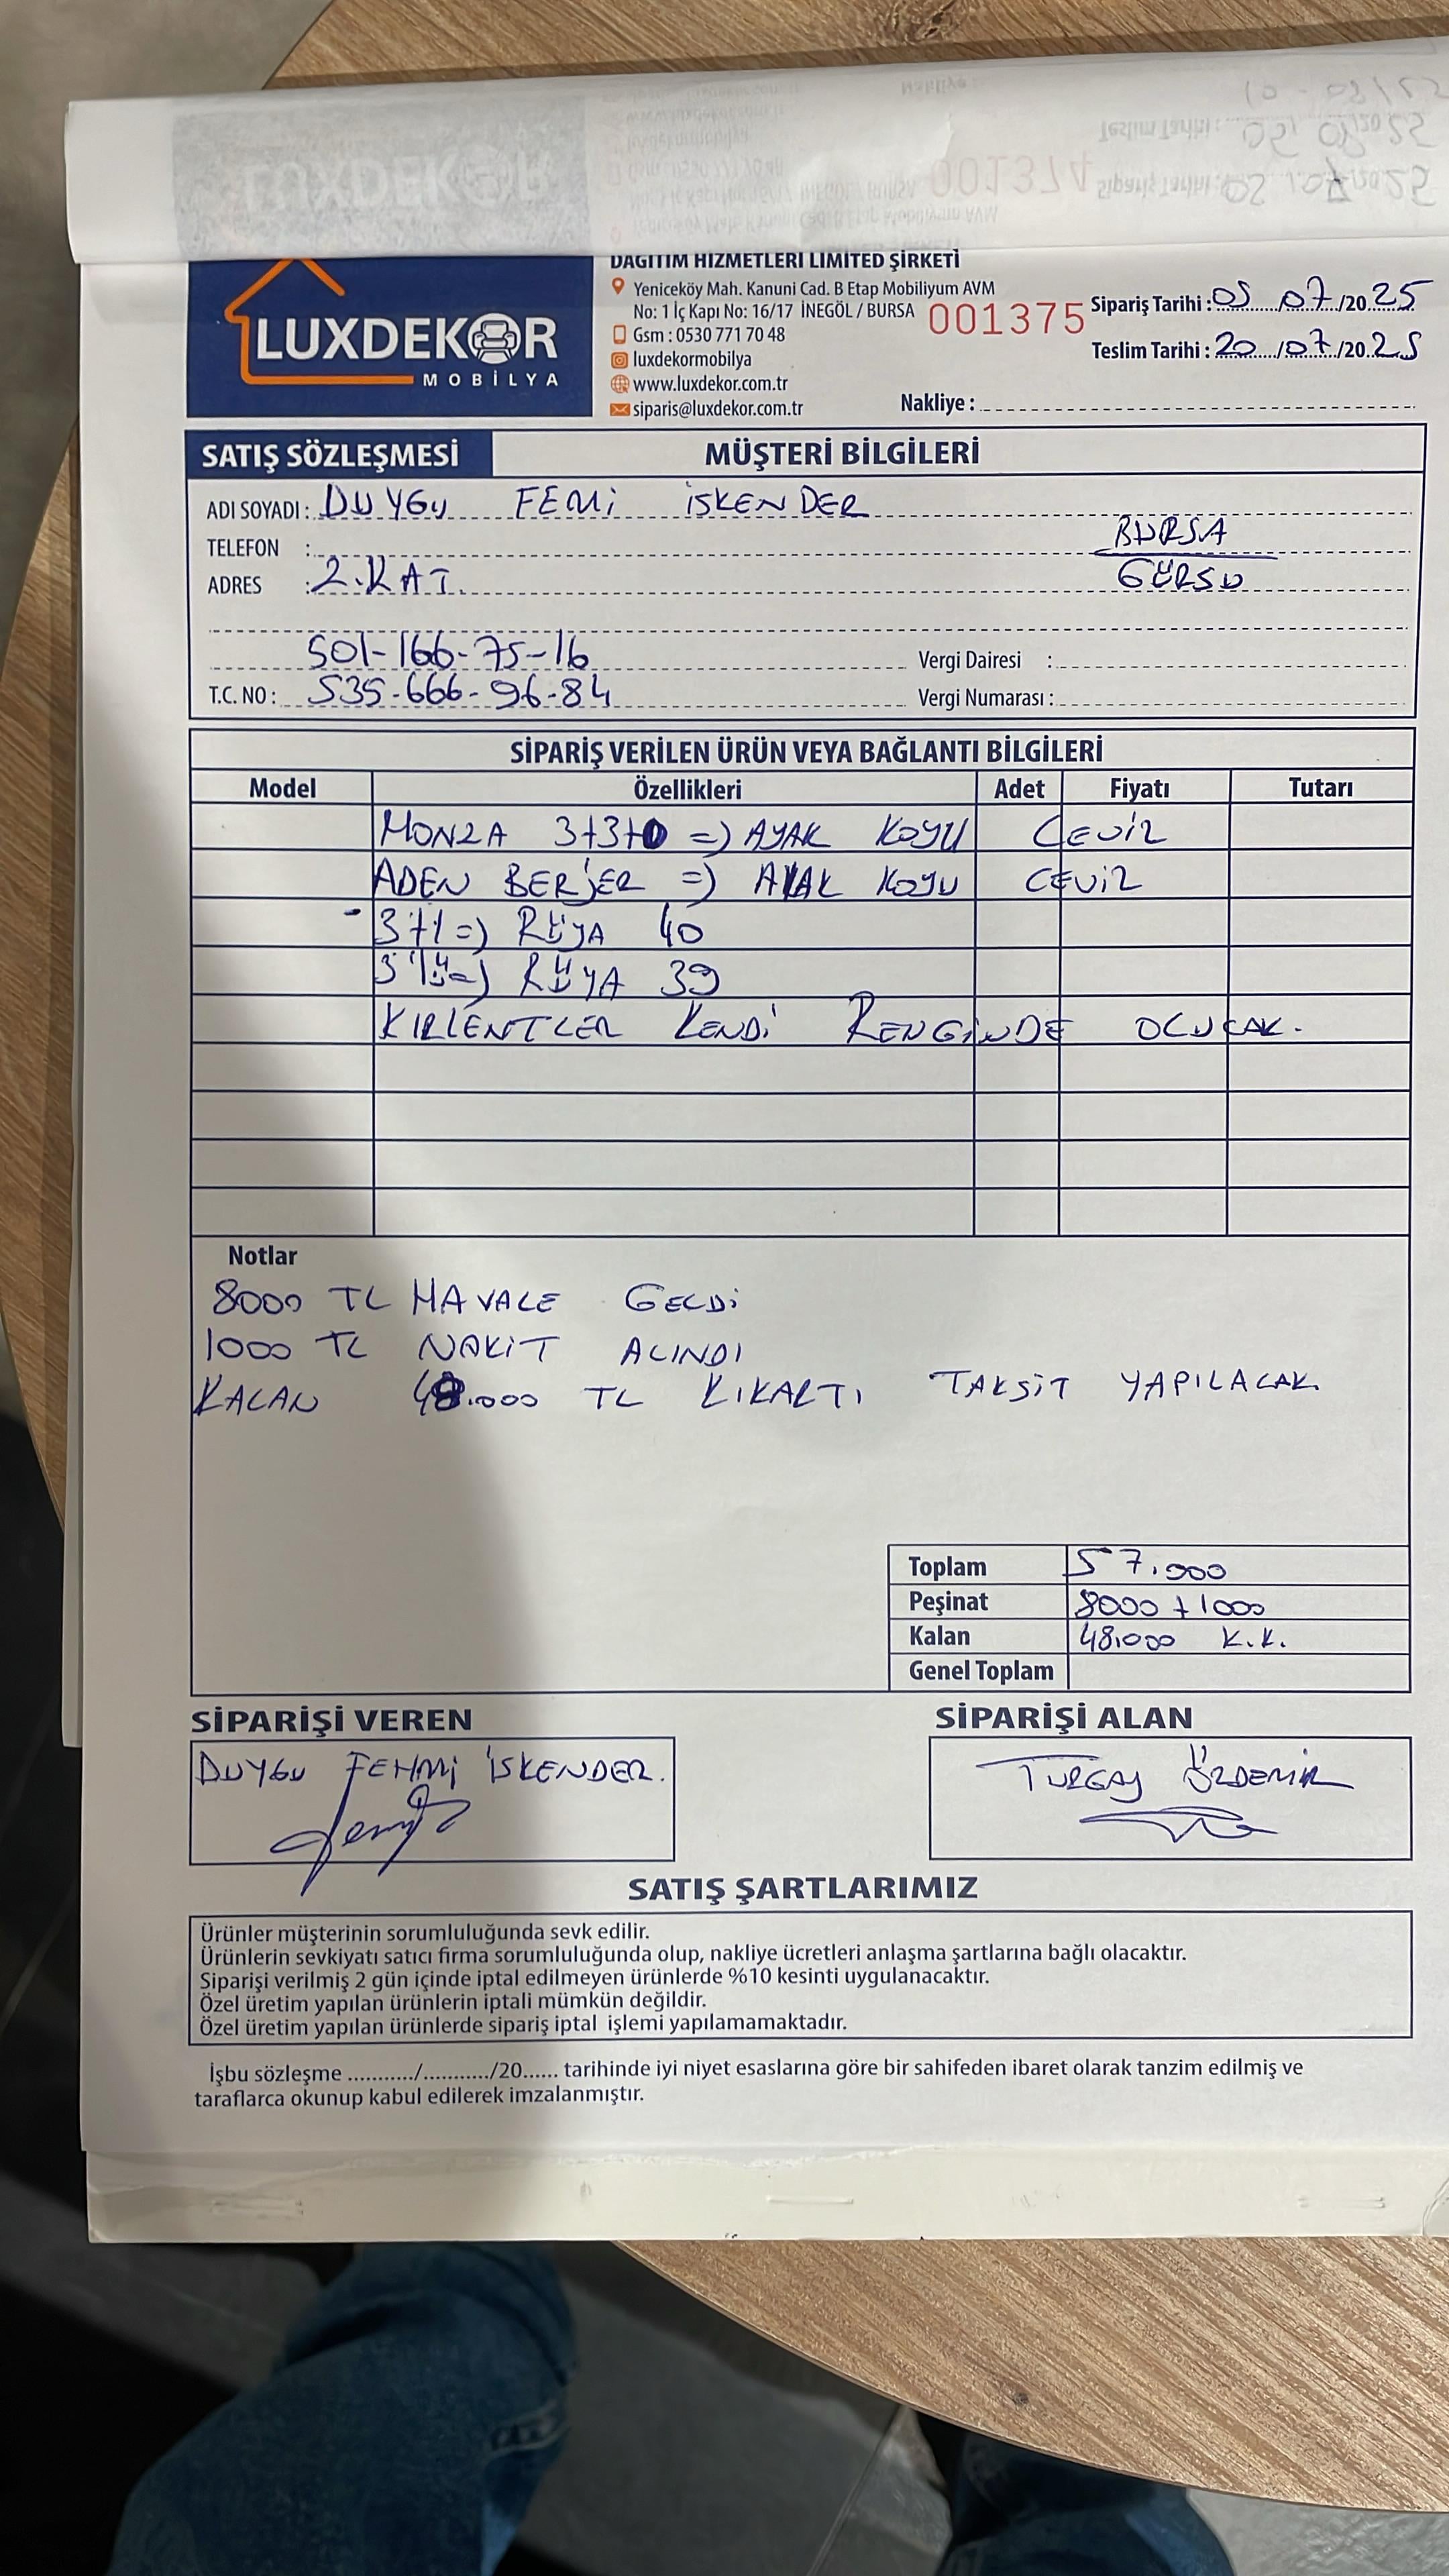 001374
Sipariş Tarihi : 05 / 07 / 2025
Teslim Tarihi : 05 / 08 / 2025
LUXDEKOR
DAĞITIM HİZMETLERİ LİMİTED ŞİRKETİ
LUXDEKOR
MOBİLYA
Yeniceköy Mah. Kanuni Cad. B Etap Mobiliyum AVM
No: 1 İç Kapı No: 16/17 İNEGÖL / BURSA
Gsm : 0530 771 70 48
luxdekormobilya
www.luxdekor.com.tr
siparis@luxdekor.com.tr
001375
Sipariş Tarihi : 05 / 07 / 20 25
Teslim Tarihi : 20 / 07 / 20 25
Nakliye :
SATIŞ SÖZLEŞMESİ
MÜŞTERİ BİLGİLERİ
ADI SOYADI : DUYGU FEMİ İSKENDER
TELEFON :
BURSA
ADRES : 2.KAT.
GÜRSU
501-166-75-16
Vergi Dairesi :
T.C. NO : 535-666-96-84
Vergi Numarası :
SİPARİŞ VERİLEN ÜRÜN VEYA BAĞLANTI BİLGİLERİ
Model Özellikleri Adet Fiyatı Tutarı
MONZA 3+3+0 => AYAK KOYU CEVİZ
ADEN BERJER => AYAK KOYU CEVİZ
- 3+1 => RÜYA 40
RÜYA 39
KIRLENTLER KENDİ RENGİNDE OLUCAK.
Notlar
8000 TL HAVALE GELDİ
1000 TL NAKİT ALINDI
KALAN 48.000 TL K.KARTI TAKSİT YAPILACAK
Toplam 57.000
Peşinat 8000 + 1000
Kalan 48.000 K.K.
Genel Toplam
SİPARİŞİ VEREN
DUYGU FEHMİ İSKENDER.
SİPARİŞİ ALAN
TURGAY ÖZDEMİR
SATIŞ ŞARTLARIMIZ
Ürünler müşterinin sorumluluğunda sevk edilir.
Ürünlerin sevkiyatı satıcı firma sorumluluğunda olup, nakliye ücretleri anlaşma şartlarına bağlı olacaktır.
Siparişi verilmiş 2 gün içinde iptal edilmeyen ürünlerde %10 kesinti uygulanacaktır.
Özel üretim yapılan ürünlerin iptali mümkün değildir.
Özel üretim yapılan ürünlerde sipariş iptal işlemi yapılamamaktadır.
İşbu sözleşme .........../.........../20...... tarihinde iyi niyet esaslarına göre bir sahifeden ibaret olarak tanzim edilmiş ve
taraflarca okunup kabul edilerek imzalanmıştır.